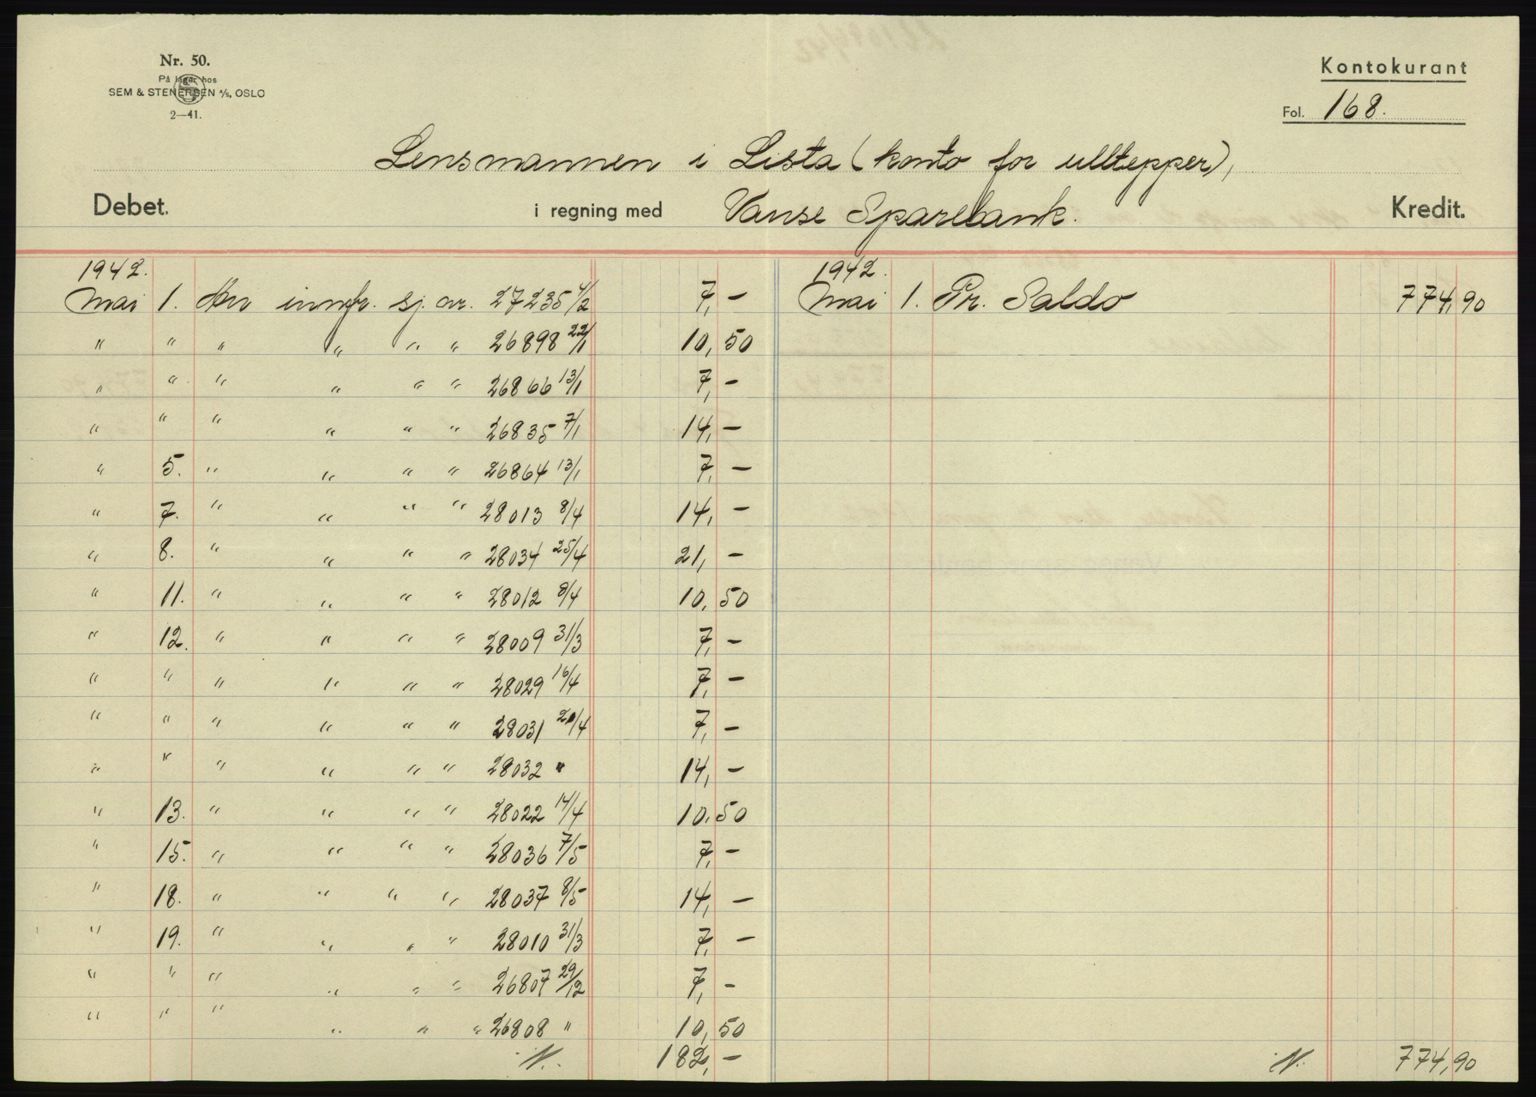 Nr. 50.
På lager hos
SEM & STENERSEN A/S, OSLO
2—41.
Kontokurant
Fol. 168.
Lensmannen i Lista (konto for ulltepper),
Debet. i regning med Vanse Sparebank. Kredit.
1942. 1942.
Mai 1. An innfr. sj. av. 27235 4/2 7,— Mai 1. Pr. Saldo 774,90
" " " " " " 26898 22/1 10,50
" " " " " " 26866 13/1 7,—
" " " " " " 26835 7/1 14,—
" 5. " " " " 26864 13/1 7,—
" 7. " " " " 28013 8/4 14,—
" 8. " " " " 28034 25/4 21,—
" 11. " " " " 28012 8/4 10,50
" 12. " " " " 28009 31/3 7,—
" " " " " " 28029 16/4 7,—
" " " " " " 28031 21/4 7,—
" " " " " " 28032 " 14,—
" 13. " " " " 28022 14/4 10,50
" 15. " " " " 28036 7/5 7,—
" 18. " " " " 28037 8/5 14,—
" 19. " " " " 28010 31/3 7,—
" " " " " " 26807 29/12 7,—
" " " " " " 26808 " 10,50
N. 182,— N. 774,90